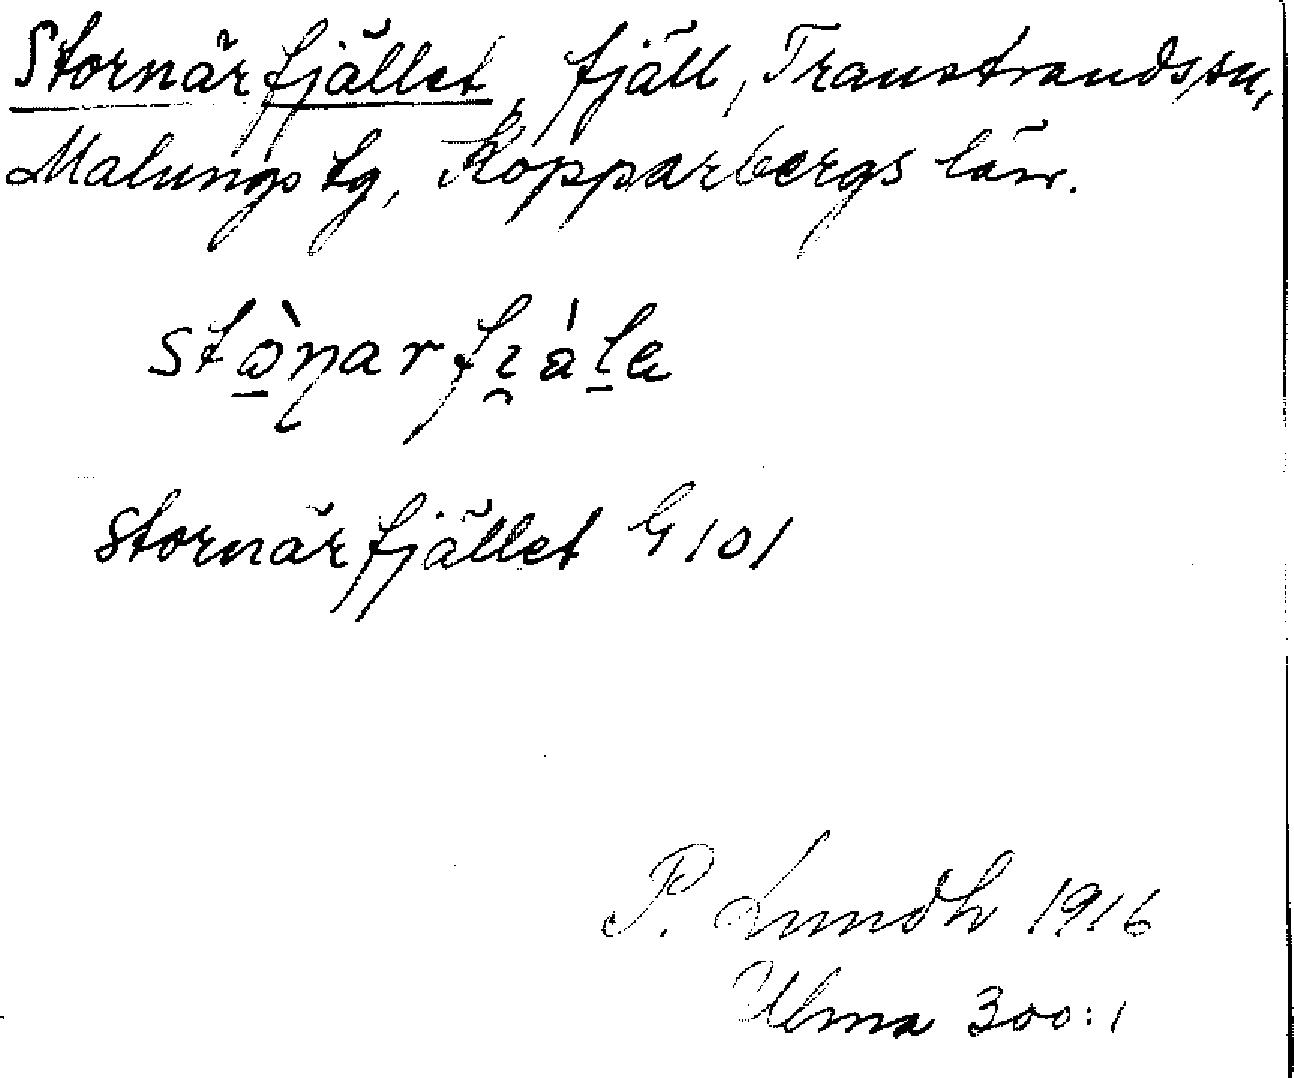 Stornärfjället, fjäll, Transtrands sn,
Malungs tg, Kopparbergs län.
stornärfjället G 101
P. Lundh 1916
Ulma 300:1